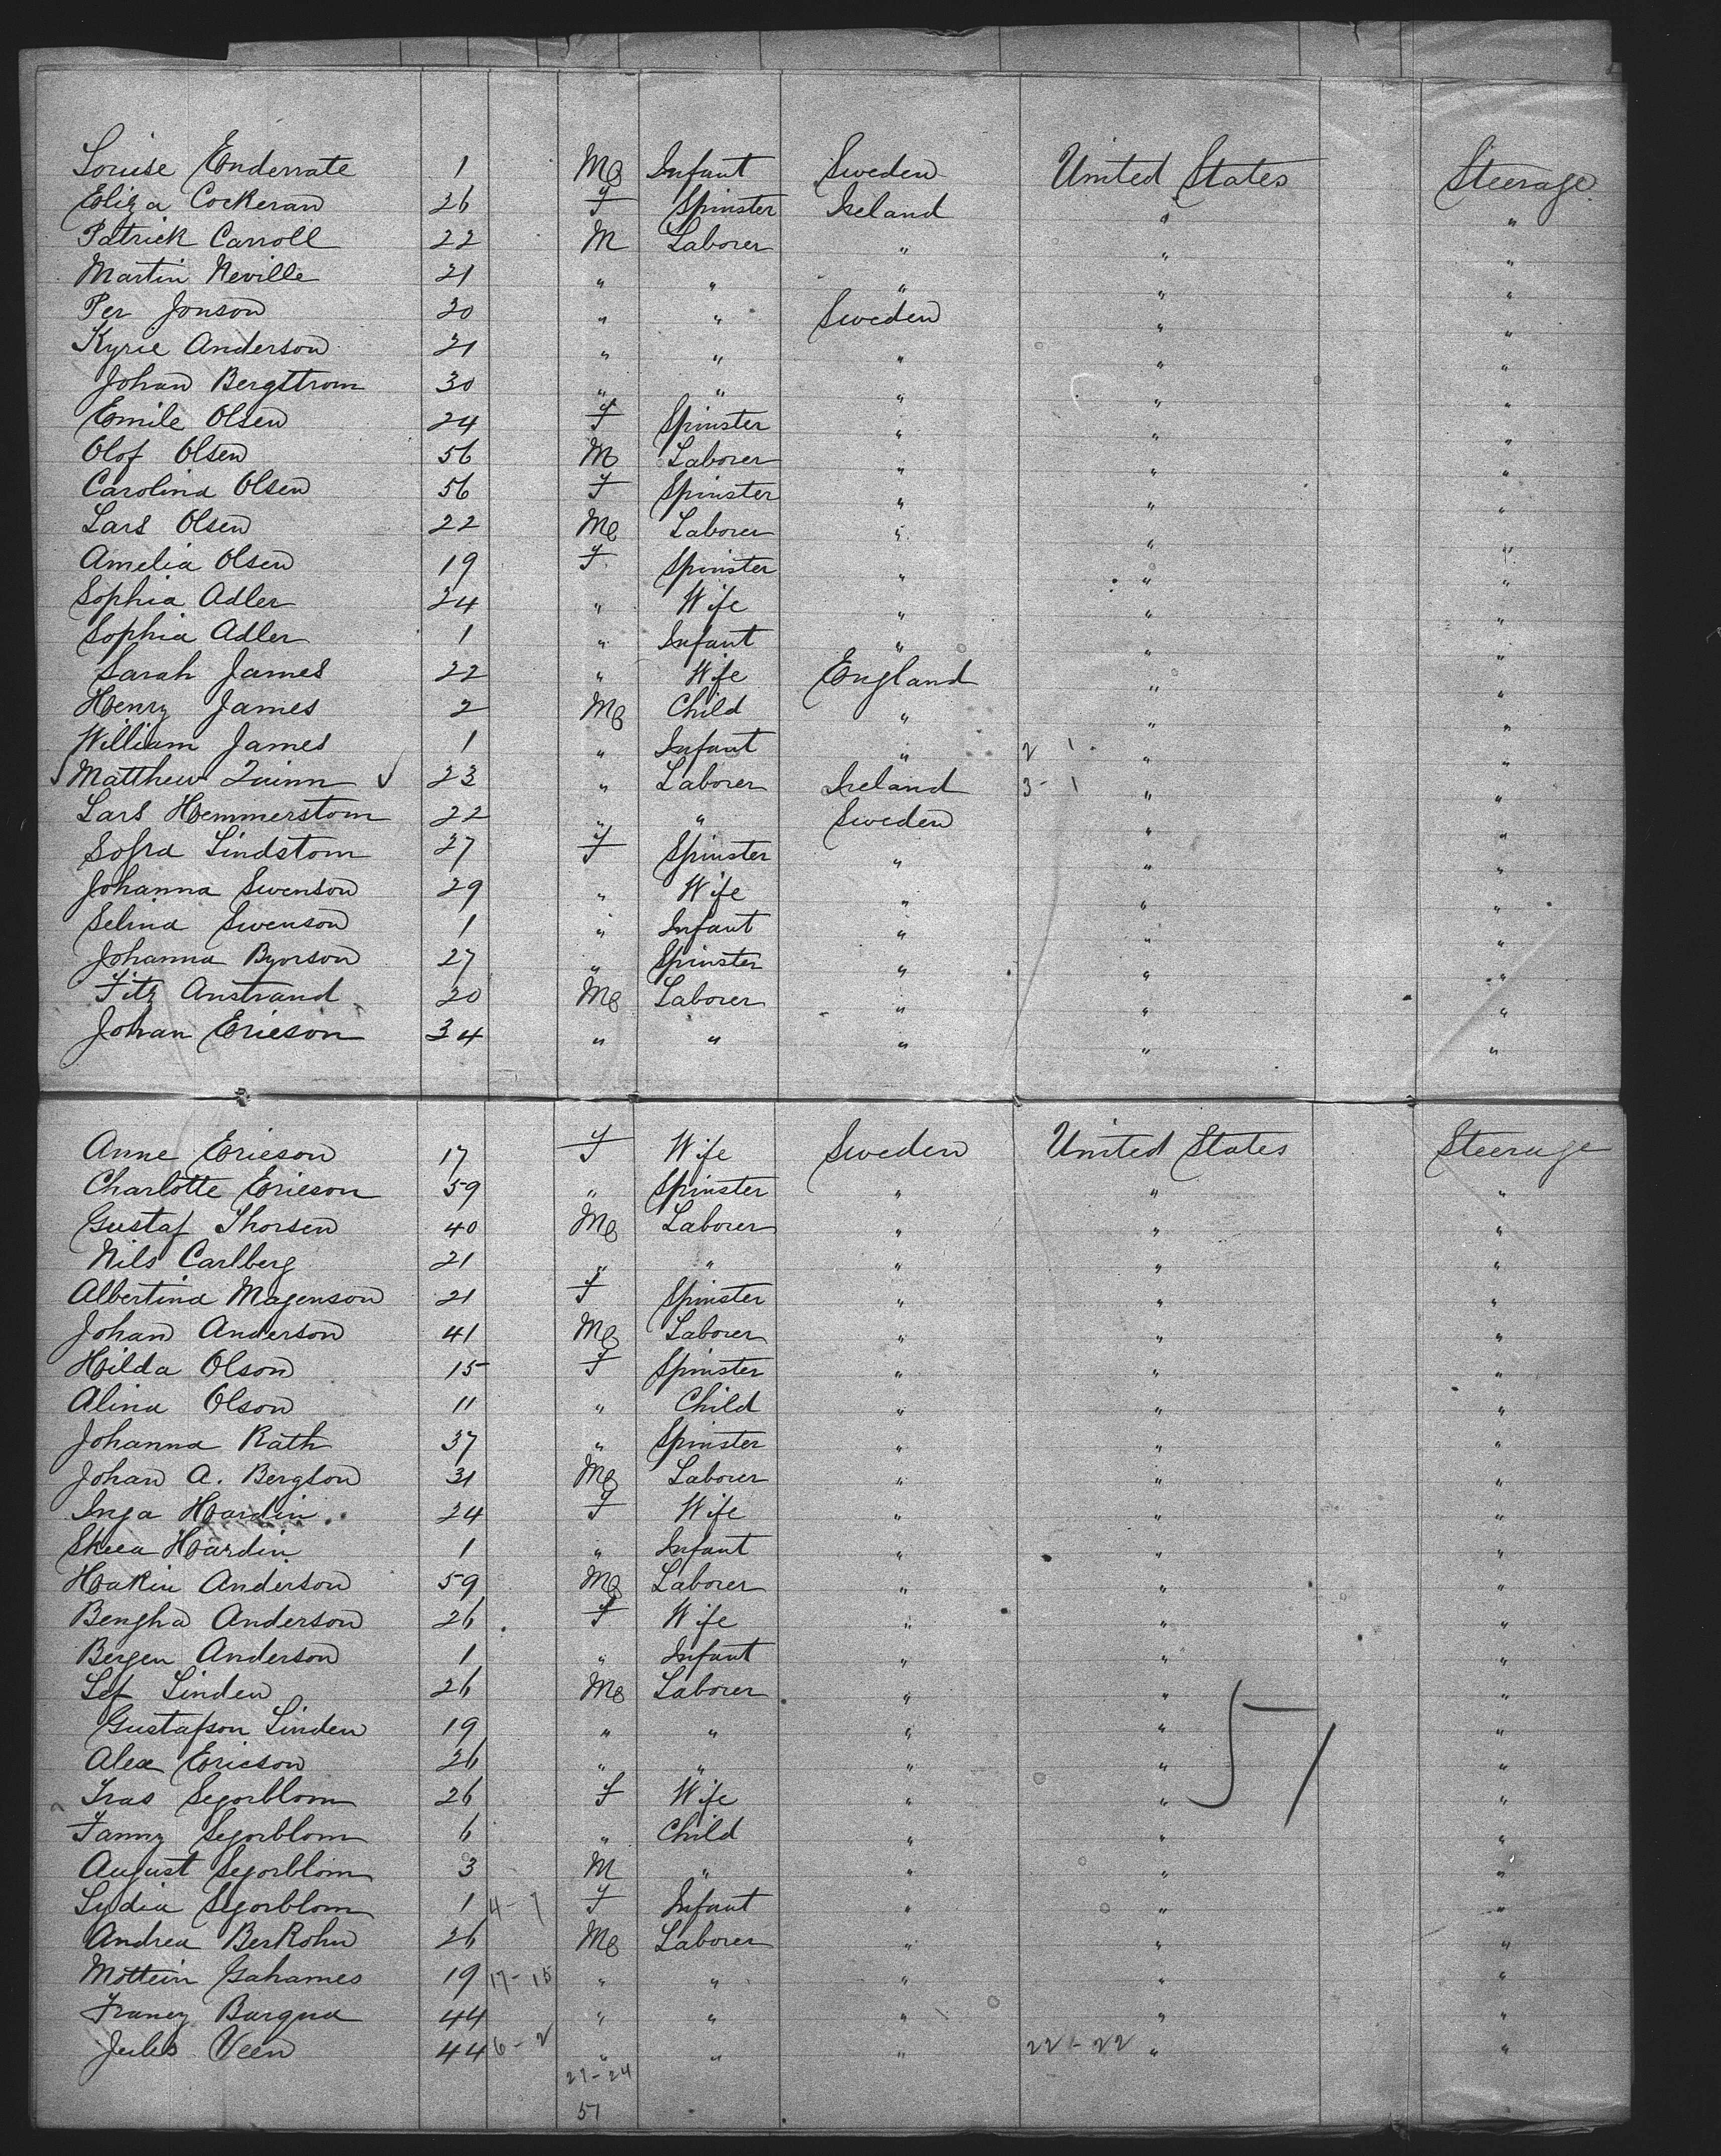 Louise Enderrate 1 M Infant Sweden United States Steerage
Eliza Cockeran 26 F Spinster Ireland " "
Patrick Carroll 22 M Laborer " " "
Martin Neville 21 " " " " "
Per Jonson 20 " " Sweden " "
Kyrie Anderson 21 " " " " "
Johan Bergstrom 30 " " " " "
Emile Olsen 24 F Spinster " " "
Olof Olsen 56 M Laborer " " "
Carolina Olsen 56 F Spinster " " "
Lars Olsen 22 M Laborer " " "
Amelia Olsen 19 F Spinster " " "
Sophia Adler 24 " Wife " " "
Sophia Adler 1 " Infant " " "
Sarah James 22 " Wife England " "
Henry James 2 M Child " " "
William James 1 " Infant " 2 1 " "
√ Matthew Quinn √ 23 " Laborer Ireland 3-1 " "
Lars Hemmerstom 22 " " Sweden " "
Sofra Lindstom 27 F Spinster " " "
Johanna Swenson 29 " Wife " " "
Selina Swenson 1 " Infant " " "
Johanna Byorson 27 " Spinster " " "
Fitz Anstrand 20 M Laborer " " "
Johan Ericson 34 " " " " "
Anne Ericson 17 F Wife Sweden United States Steerage
Charlotte Ericson 59 " Spinster " " "
Gustaf Thorsen 40 M Laborer " " "
Nils Carlberg 21 " " " " "
Albertina Magenson 21 F Spinster " " "
Johan Anderson 41 M Laborer " " "
Hilda Olson 15 F Spinster " " "
Alina Olson 11 " Child " " "
Johanna Rath 37 " Spinster " " "
Johan A. Bergson 31 M Laborer " " "
Inga Hardin 24 F Wife " " "
Hardin 1 " Infant " " "
Hakin Anderson 59 M Laborer " " "
Bengha Anderson 26 F Wife " " "
Bergen Anderson 1 " Infant " " "
Lef Linden 26 M Laborer " " "
Gustafson Linden 19 " " " " "
Alex Ericson 26 " " " " "
Segorblom 26 F Wife " " "
Fanny Segorblom 6 " Child " " "
August Segorblom 3 M " " " "
Lydia Segorblom 1 4-1 F Infant " " "
Andrea Berkohn 26 M Laborer " " "
Mottein Gahames 19 17-15 " " " " "
Franey Barqua 44 " " " " "
Jules Veen 44 6-2 " " " 22-22 " "
27-24
51
51